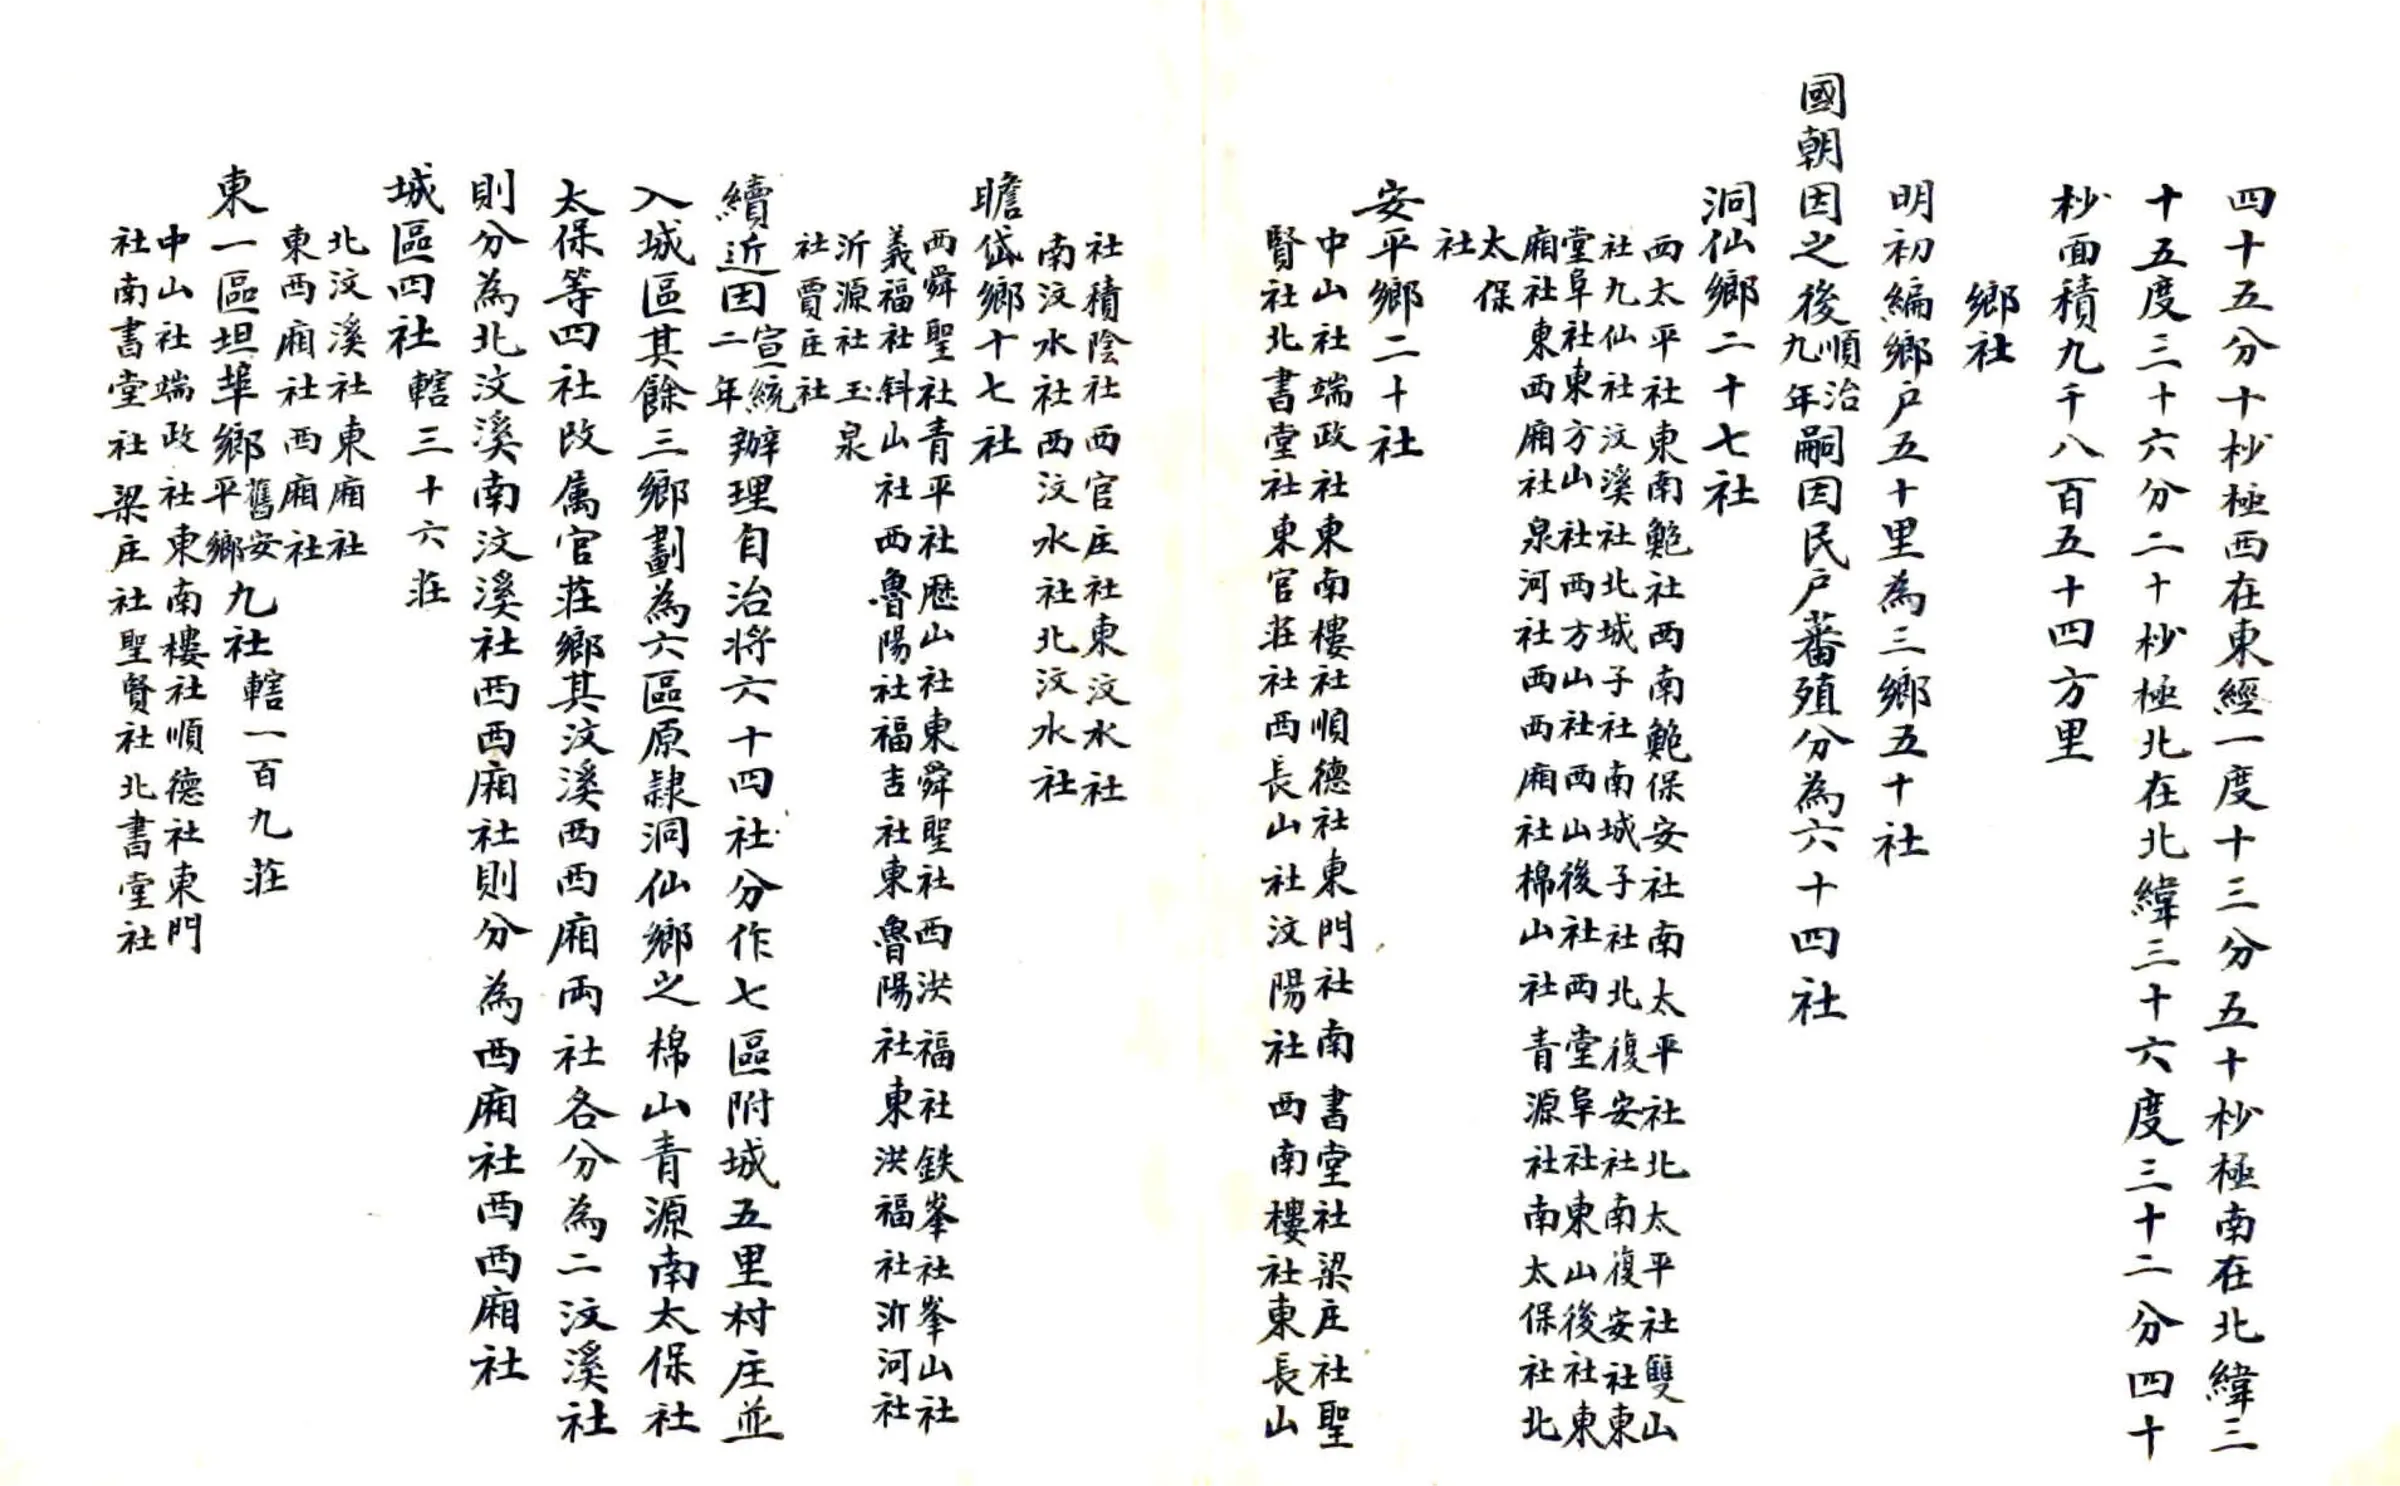 四十五分十杪極西在東經一度十三分五十杪極南在北緯三
十五度三十六分二十杪極北在北緯三十六度三十二分四十
杪面積九千八百五十四方里
鄉社
明初編鄉户五十里為三鄉五十社
國朝因之後順治九年嗣因民户蕃殖分為六十四社
洞仙鄉二十七社
西太平社東南鮑社西南鮑保安社南太平社北太平社雙山
社九仙社汶溪社北城子社南城子社北復安社南復安社東
堂阜社東方山社西方山社西山後社西堂阜社東山後社東
廂社東西廂社泉河社西西廂社棉山社青源社南太保社北
太保
社
安平鄉二十社
中山社端政社東南樓社順德社東門社南書堂社梁庄社聖
賢社北書堂社東官莊社西長山社汶陽社西南樓社東長山
社積陰社西官庄社東汶水社
南汶水社西汶水社北汶水社
瞻岱鄉十七社
西舜聖社青平社歷山社東舜聖社西洪福社鉄峯社峯山社
義福社斜山社西魯陽社福吉社東魯陽社東洪福社沂河社
沂源社玉泉
社賈庄社
續近因宣統二年辦理自治將六十四社分作七區附城五里村庄並
入城區其餘三鄉劃為六區原隷洞仙鄉之棉山青源南太保社
太保等四社改属官莊鄉其汶溪西西廂兩社各分為二汶溪社
則分為北汶溪南汶溪社西西廂社則分為西廂社西西廂社
城區四社轄三十六莊
北汶溪社東廂社
東西廂社西廂社
東一區坦埠鄉舊安平鄉九社轄一百九莊
中山社端政社東南樓社順德社東門
社南書堂社梁庄社聖賢社北書堂社